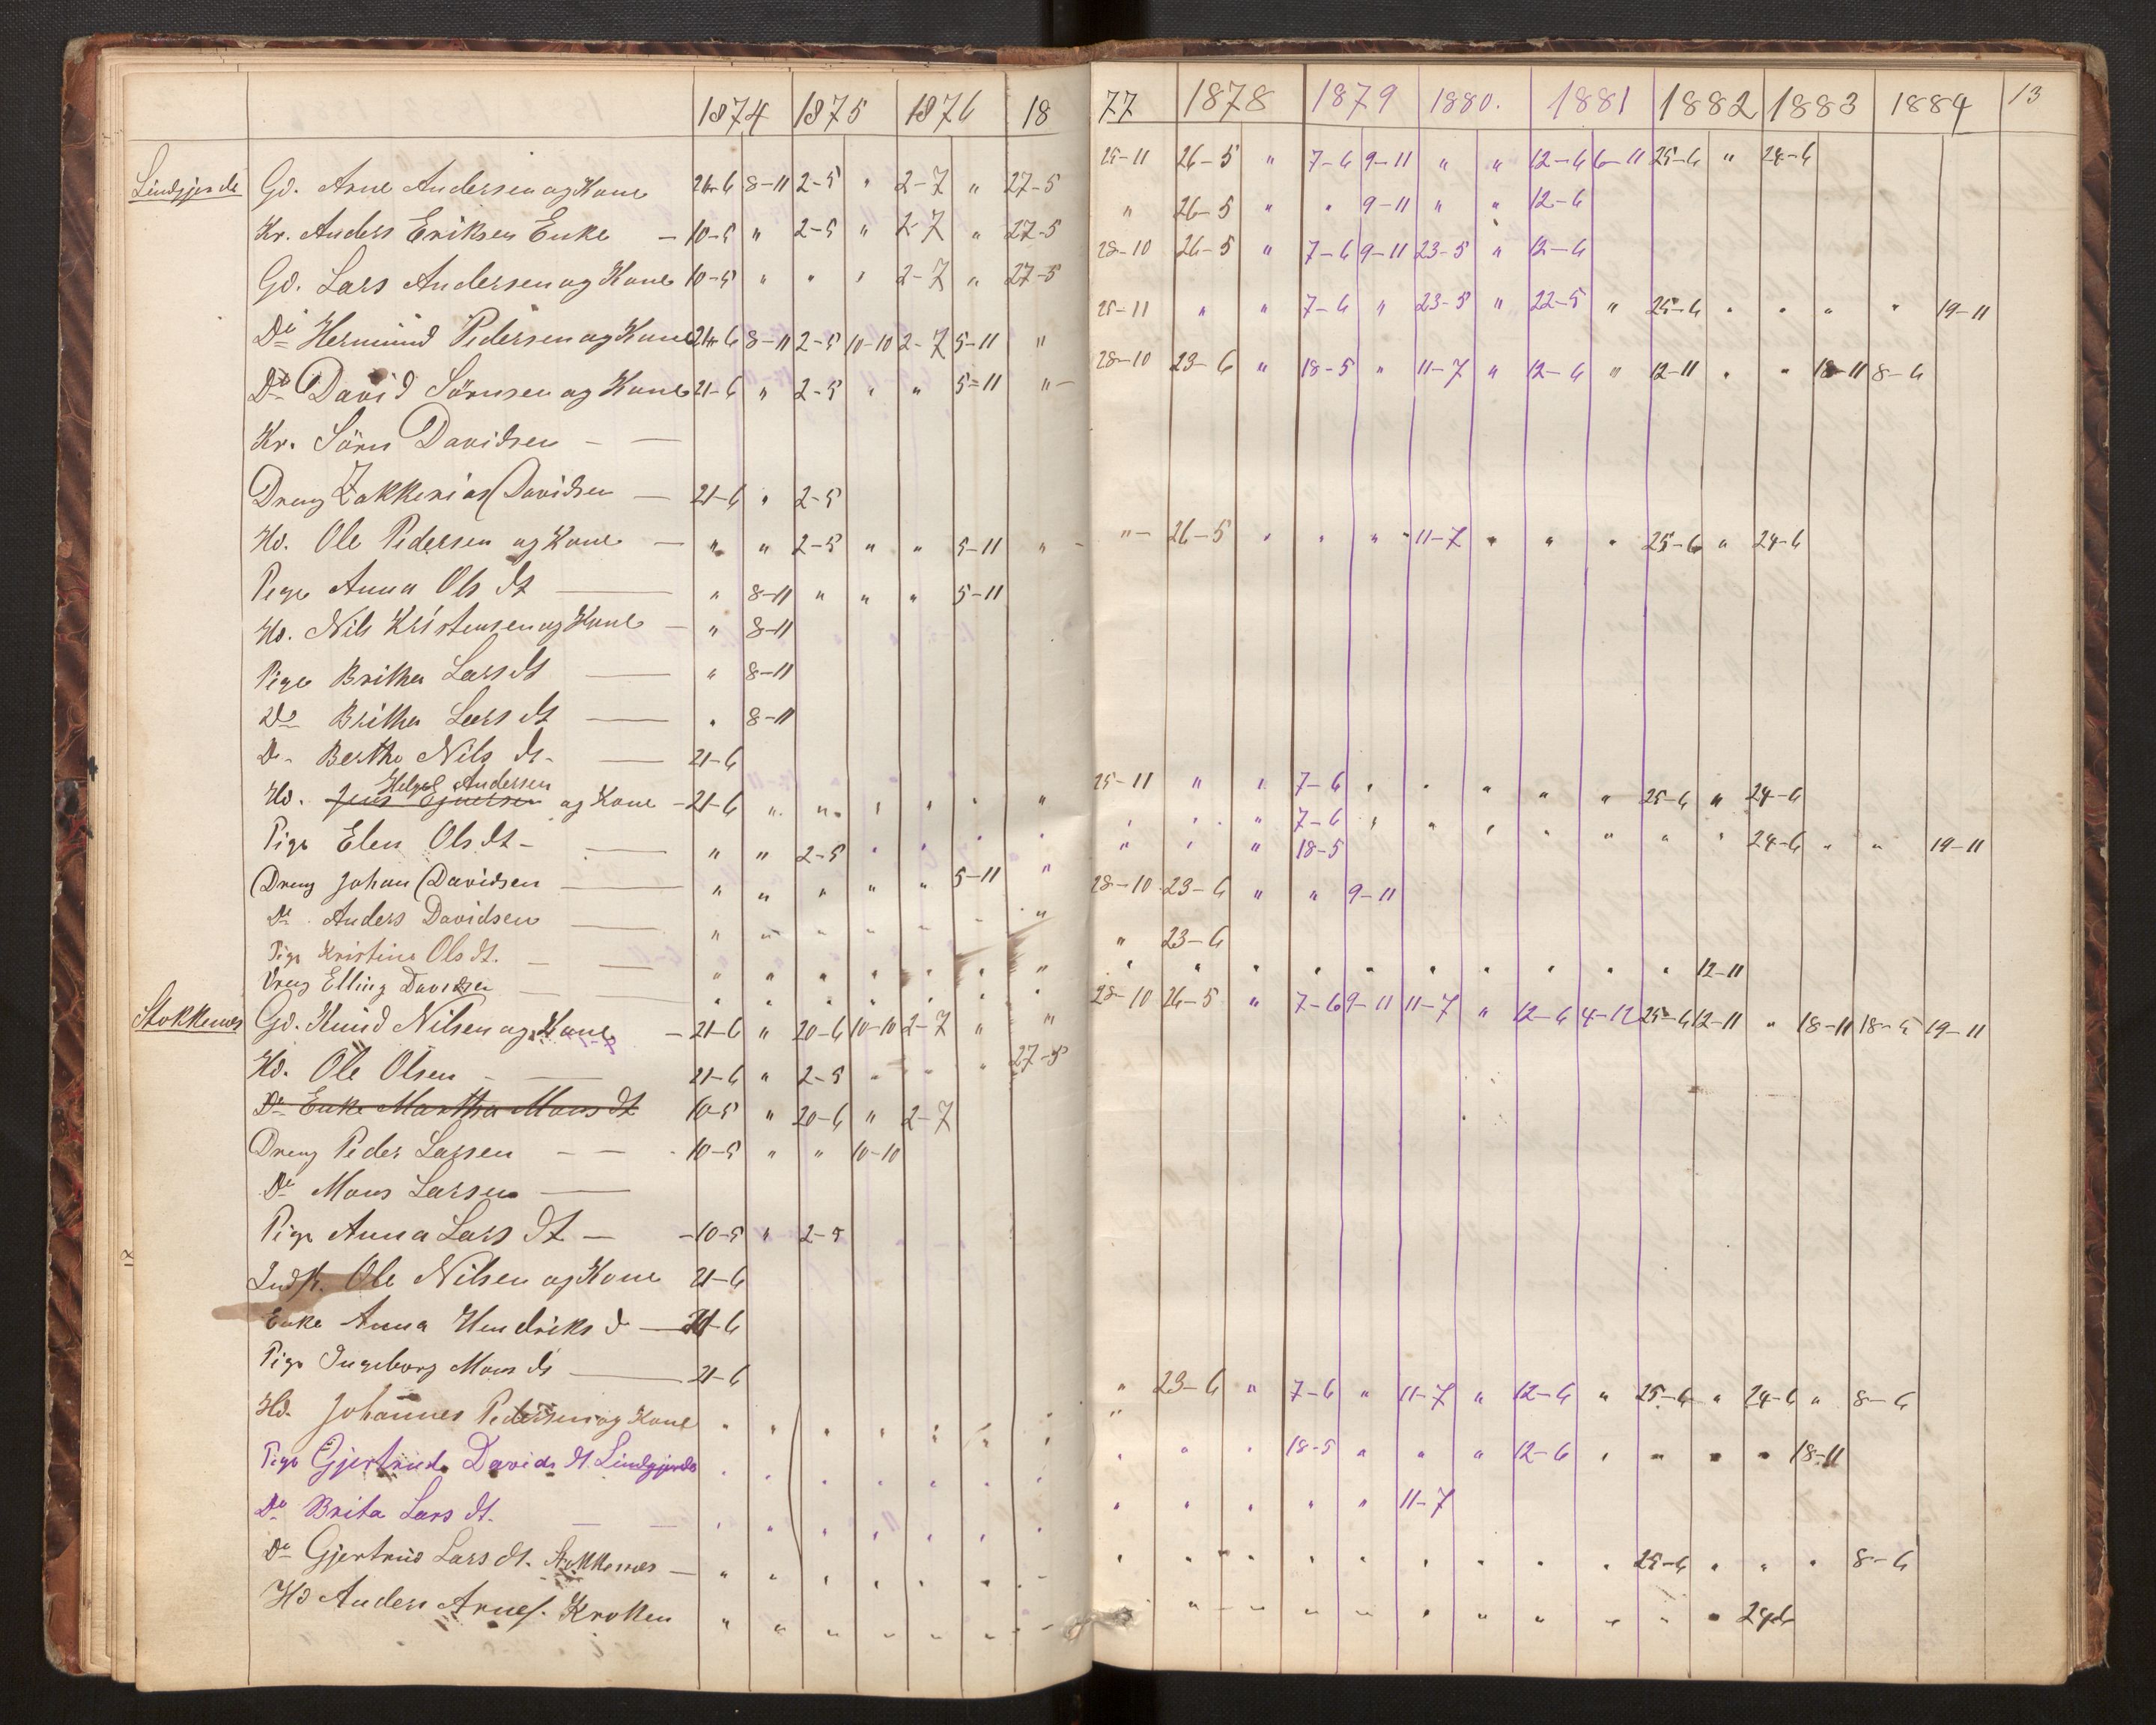 1874 1875 1876 18 77 1878 1879 1880. 1881 1882 1883 1884 13
Lindgjerde Gd. Arne Andersen og Kone 21-6 8-11 2-5 " 2-7 " 27-5 25-11 26-5 " 7-6 9-11 " " 12-6 6-11 25-6 " 24-6
Kr. Anders Eriksen Enke — 10-5 " 2-5 " 2-7 " 27-5 " 26-5 " " 9-11 " " 12-6
Gd. Lars Andersen og Kone 10-5 " " " 2-7 " 27-5 28-10 26-5 " 7-6 9-11 23-5 " 12-6
Do Hermund Pedersen og Kone 21-6 8-11 2-5 10-10 2-7 5-11 " 25-11 " " 7-6 " 23-5 " 22-5 " 25-6 " " " " 19-11
Do David Sørnsen og Kone 21-6 " 2-5 " " 5-11 " 28-10 23-6 " 18-5 " 11-7 " 12-6 " 12-11 " " 18-11 8-6
Kr. Sörn Davidsen — —
Dreng Zakkerias Davidsen — 21-6 " 2-5
Hd. Ole Pedersen og Kone — " " 2-5 " " 5-11 " " 26-5 " " " 11-7 " " " 25-6 " 24-6
Pige Anna Ols dt — " 8-11 " " " 5-11
Hd. Nils Kristensen og Kone — " 8-11
Pige Britha Lars dt — " 8-11
Do Britha Lars dt — " 8-11
Do Berthe Nils dt — 21-6
Helge Andersen
Hd. og Kone — 21-6 " " " " " " 25-11 " " 7-6 " " " " " 25-6 " 24-6
Pige Elen Ols dt — " " 2-5 " " " " " " " 7-6 " " " " " " " 24-6 " " 19-11
Dreng Johan Davidsen — " " " " " 5-11 " " " " 18-5
Do Anders Davidsen — " " " " " " " 28-10 23-6 " " 9-11
Pige Kristine Ols dt. — " " " " " " " " 23-6
Dreng Elling Davidsen — " " " " " " " " " " " " " " " " " 12-11
Stokkenes Gd. Knud Nilsen og Kone — 21-6 " 20-6 10-10 2-7 " " 28-10 26-5 " 7-6 9-11 11-7 " 12-6 4-12 25-6 12-11 " 18-11 18-5 19-11
Hd. Ole Olsen — 21-6 " 2-5 " " " 27-5
Do Enke Martha Mons dt 10-5 " 20-6 " 2-7
Dreng Peder Larsen — — 10-5 " " 10-10
Do Mons Larsen —
Pige Anna Lars dt — 10-5 " 2-5
Indst. Ole Nilsen og Kone 21-6
Enke Anna Hendriks d — 21-6
Pige Ingeborg Mons dt — 21-6
Hd. Johannes Pedersen og Kone " " " " " " " " 23-6 " 7-6 " 11-7 " 12-6 " 25-6 " 24-6 " 8-6
Pige Gjertrud Davids dt. Lindgjerde " " " " " " " " " " 18-5 " " " 12-6 " " " " 18-11
Do Brita Lars dt. — — " " " " " " " " " " " " 11-7
Do Gjertrud Lars dt. Stokkenes — " " " " " " " " " " " " " " " " 25-6 " " " 8-6
Hd Anders Arnes. Kroken " " " " " " " " " " " " " " " " " 24-6